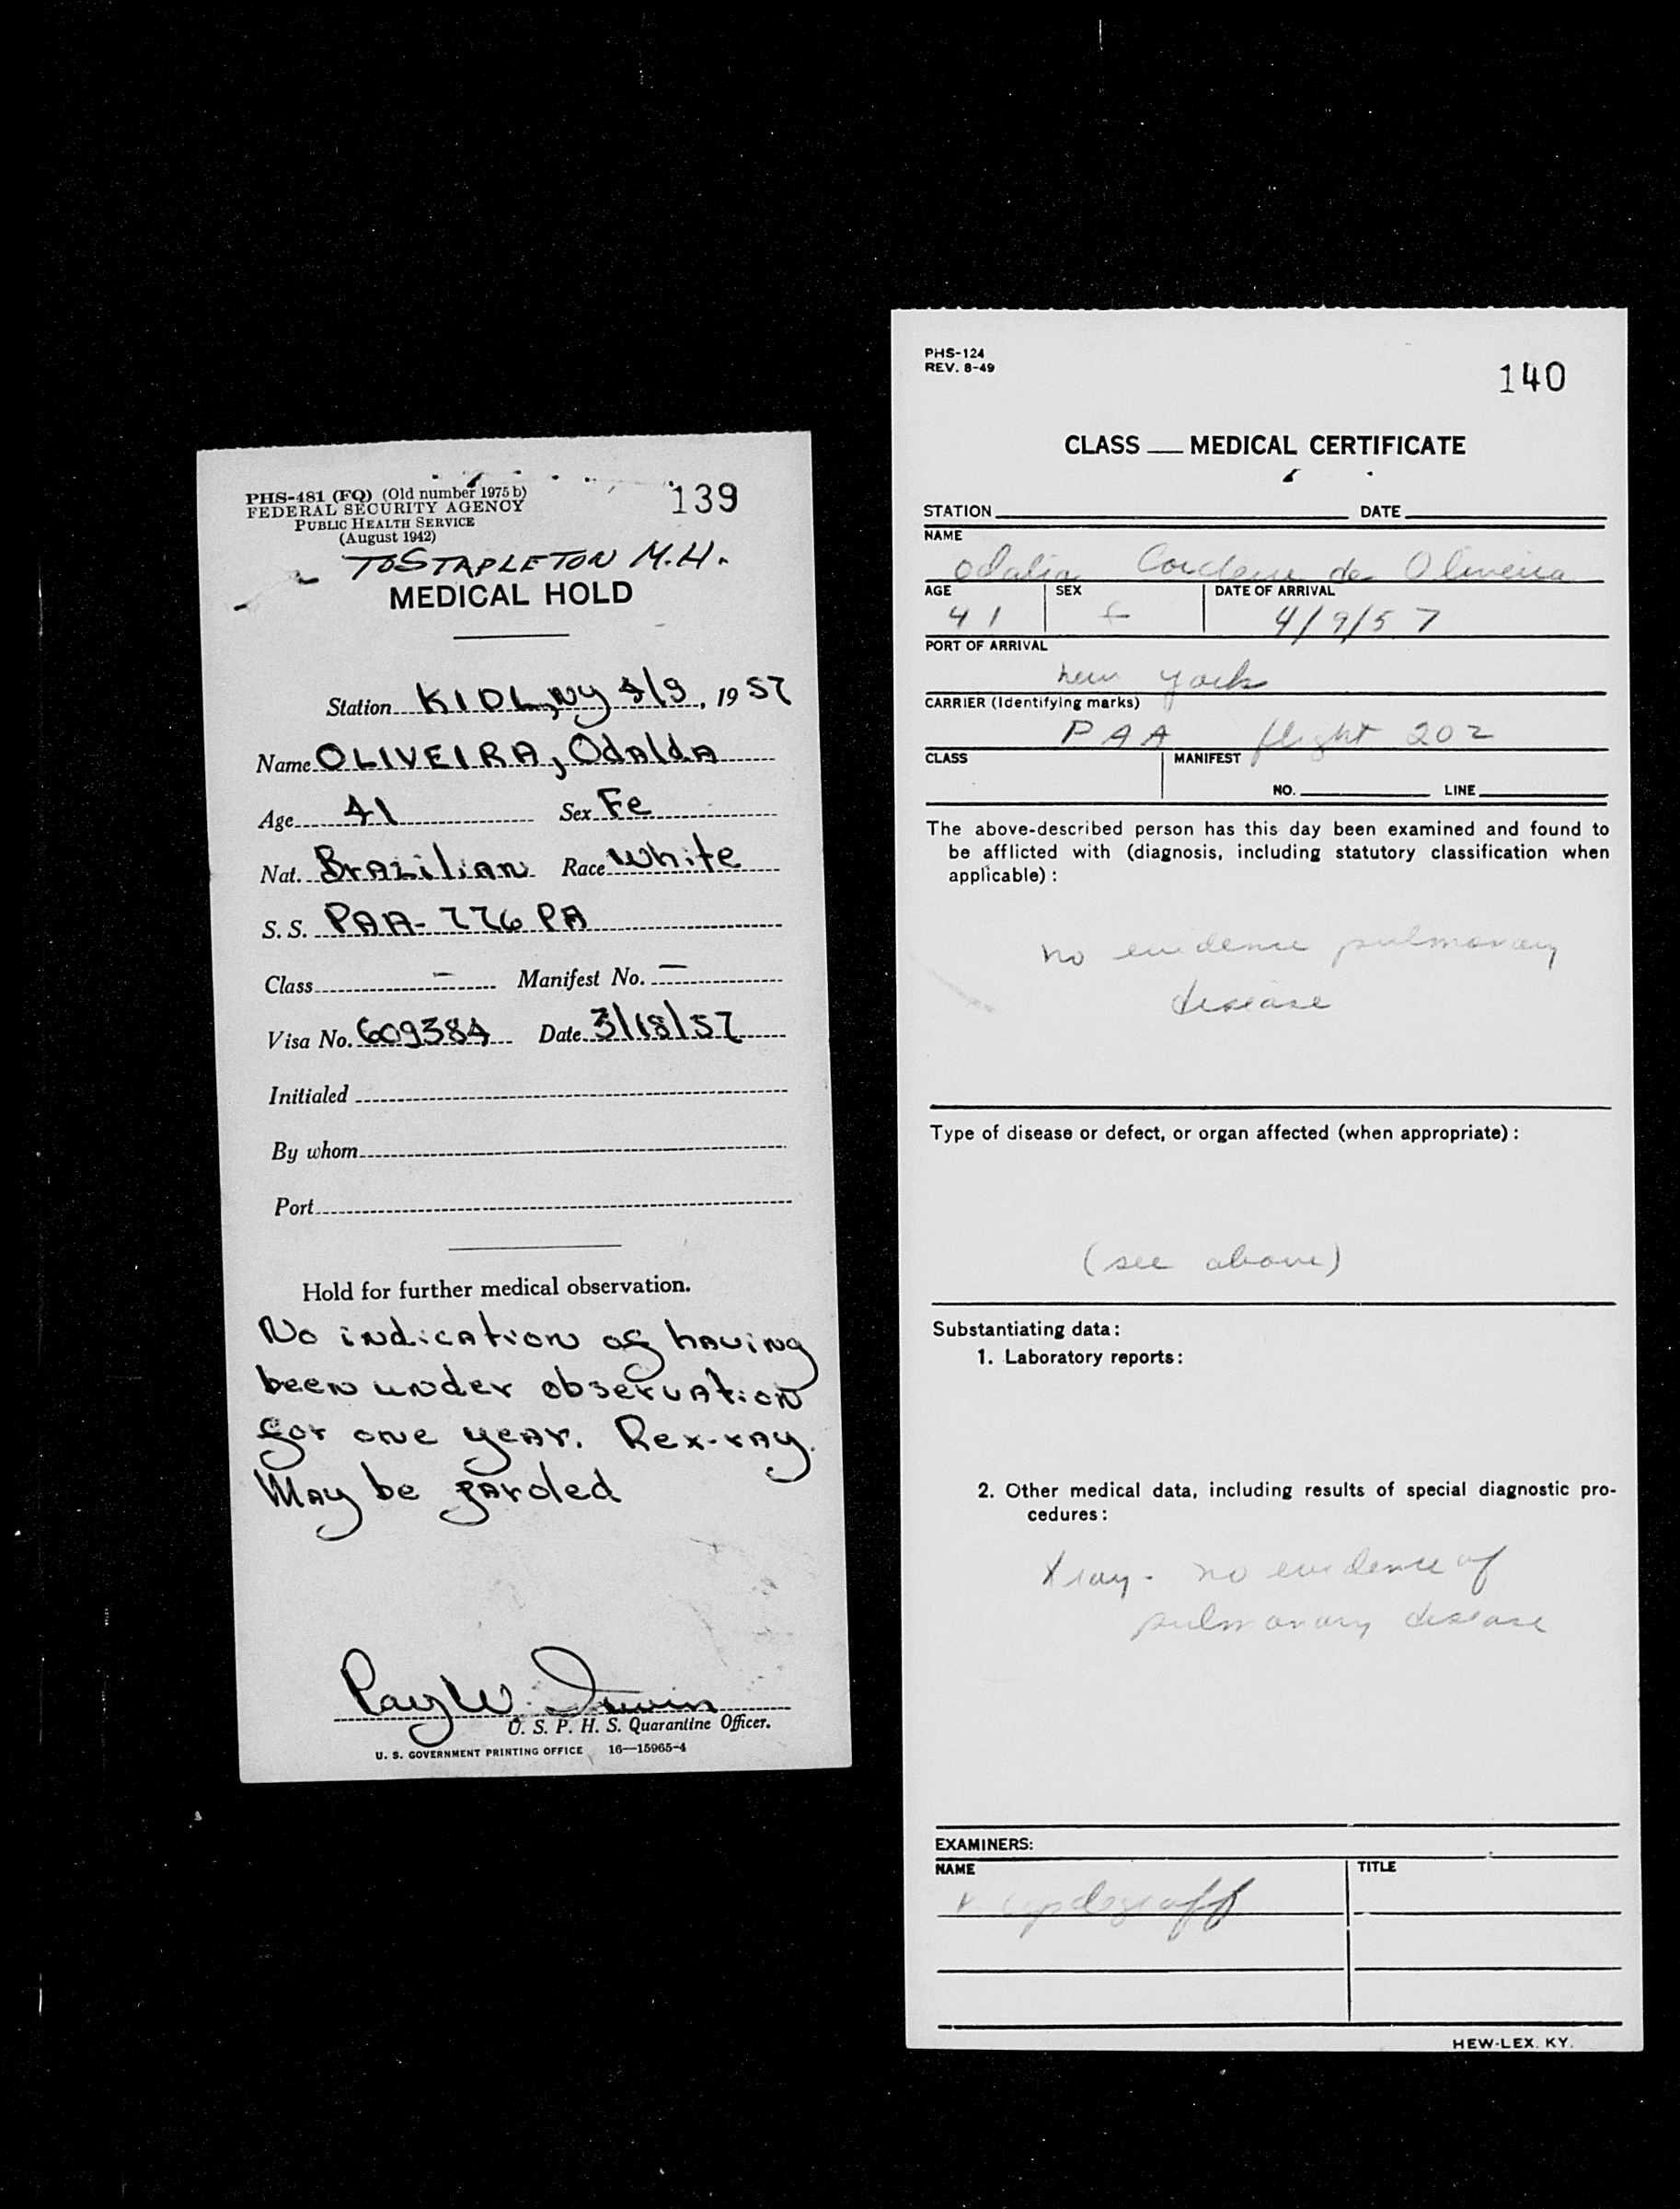 PHS-481 (FQ) (Old number 1975 b)
139
FEDERAL SECURITY AGENCY
PUBLIC HEALTH SERVICE
(August 1942)
TO STAPLETON M.H.
MEDICAL HOLD
Station KIDL, NY 4/9, 1957
Name OLIVEIRA, Odalda
Age 41 Sex Fe
Nat. Brazilian Race White
S. S. PAA- 776 PA
Class - Manifest No. -
Visa No. 609384 Date 3/18/57
Initialed
By whom
Port
Hold for further medical observation.
No indication of having
been under observation
for one year. Rex-ray.
May be paroled
Ray W. Irwin
U. S. P. H. S. Quarantine Officer.
U. S. GOVERNMENT PRINTING OFFICE 16—15965-4
PHS-124
REV. 8-49
140
CLASS MEDICAL CERTIFICATE
STATION DATE
NAME
Odalia de Oliveira
AGE SEX DATE OF ARRIVAL
41 f 4/9/57
PORT OF ARRIVAL
new york
CARRIER (Identifying marks)
PAA flight 202
CLASS MANIFEST
NO. LINE
The above-described person has this day been examined and found to
be afflicted with (diagnosis, including statutory classification when
applicable) :
no evidence pulmonary
disease
Type of disease or defect, or organ affected (when appropriate) :
(see above)
Substantiating data :
1. Laboratory reports :
2. Other medical data, including results of special diagnostic pro-
cedures :
Xray - no evidence of
pulmonary disease
EXAMINERS:
NAME TITLE
HEW-LEX. KY.